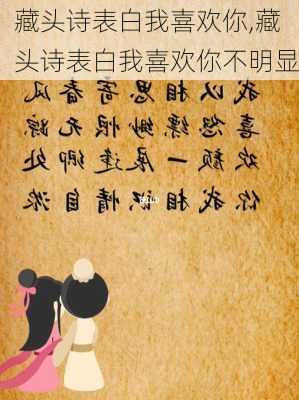 藏头诗表白我喜欢你,藏
头诗表白我喜欢你不明显
我以相思寄春风
喜忽缥缈恨无踪
欢颜一展逢卿处
你我相识情自浓